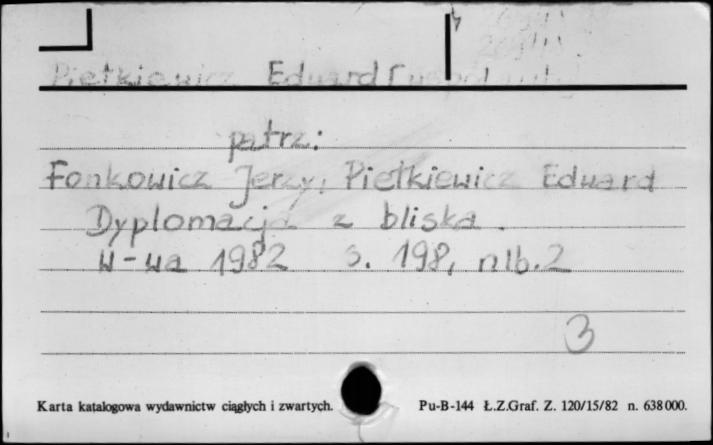 Pietkiewicz Eduard [współaut.]
patrz:
Fonkowicz Jerzy, Pietkiewicz Eduard
Dyplomacja z bliska.
W-wa 1982 s. 198, nlb. 2
3
Karta katalogowa wydawnictw ciągłych i zwartych. Pu-B-144 Ł.Z.Graf. Z. 120/15/82 n. 638 000.